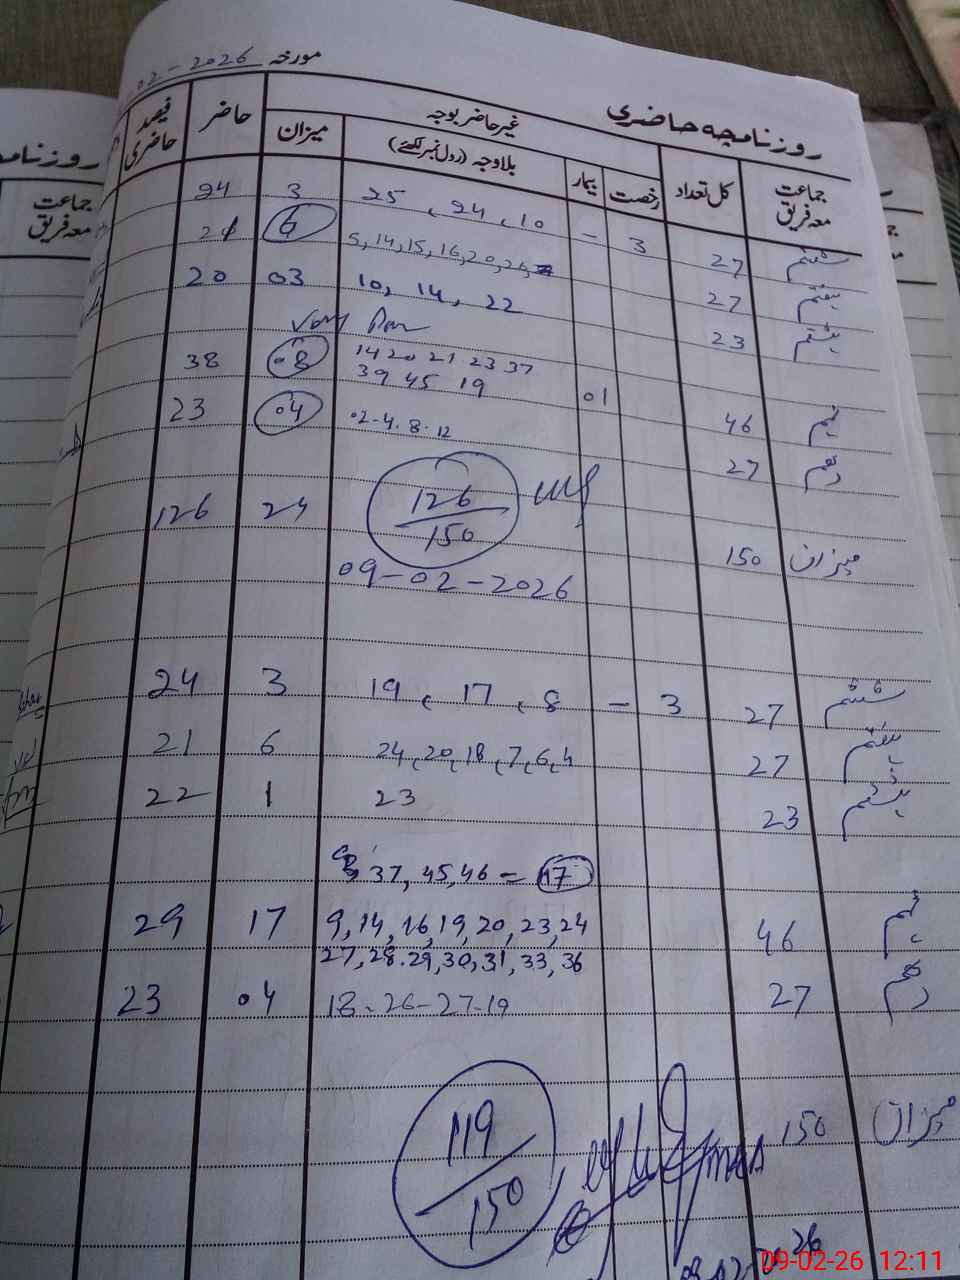 مورخہ 02-2026
روزنامچہ حاضری
جماعت معہ فریق کل تعداد غیر حاضر بوجہ حاضر فیصد حاضری
رخصت بیمار بلاوجہ (رول نمبر لکھئے) میزان
ششم 27 3 - 10 ، 24 ، 25 3 24
ہفتم 27 5, 14, 15, 16, 20, 26, 6 21
ہشتم 23 10, 14, 22 03 20
14 20 21 23 37
نہم 46 01 39 45 19 08 38
دہم 27 02-4.8.12 04 23
میزان 150 126/150 24 126
09-02-2026
ششم 27 3 - 8 ، 17 ، 19 3 24
ہفتم 27 4 ، 6 ، 7 ، 18 ، 20 ، 24 6 21
ہشتم 23 23 1 22
37, 45, 46 = 17
نہم 46 9, 14, 16, 19, 20, 23, 24 17 29
27, 28. 29, 30, 31, 33, 36
دہم 27 18-26-27-19 04 23
میزان 150 119/150
روزنامچہ
جماعت معہ فریق
09-02-26 12:11